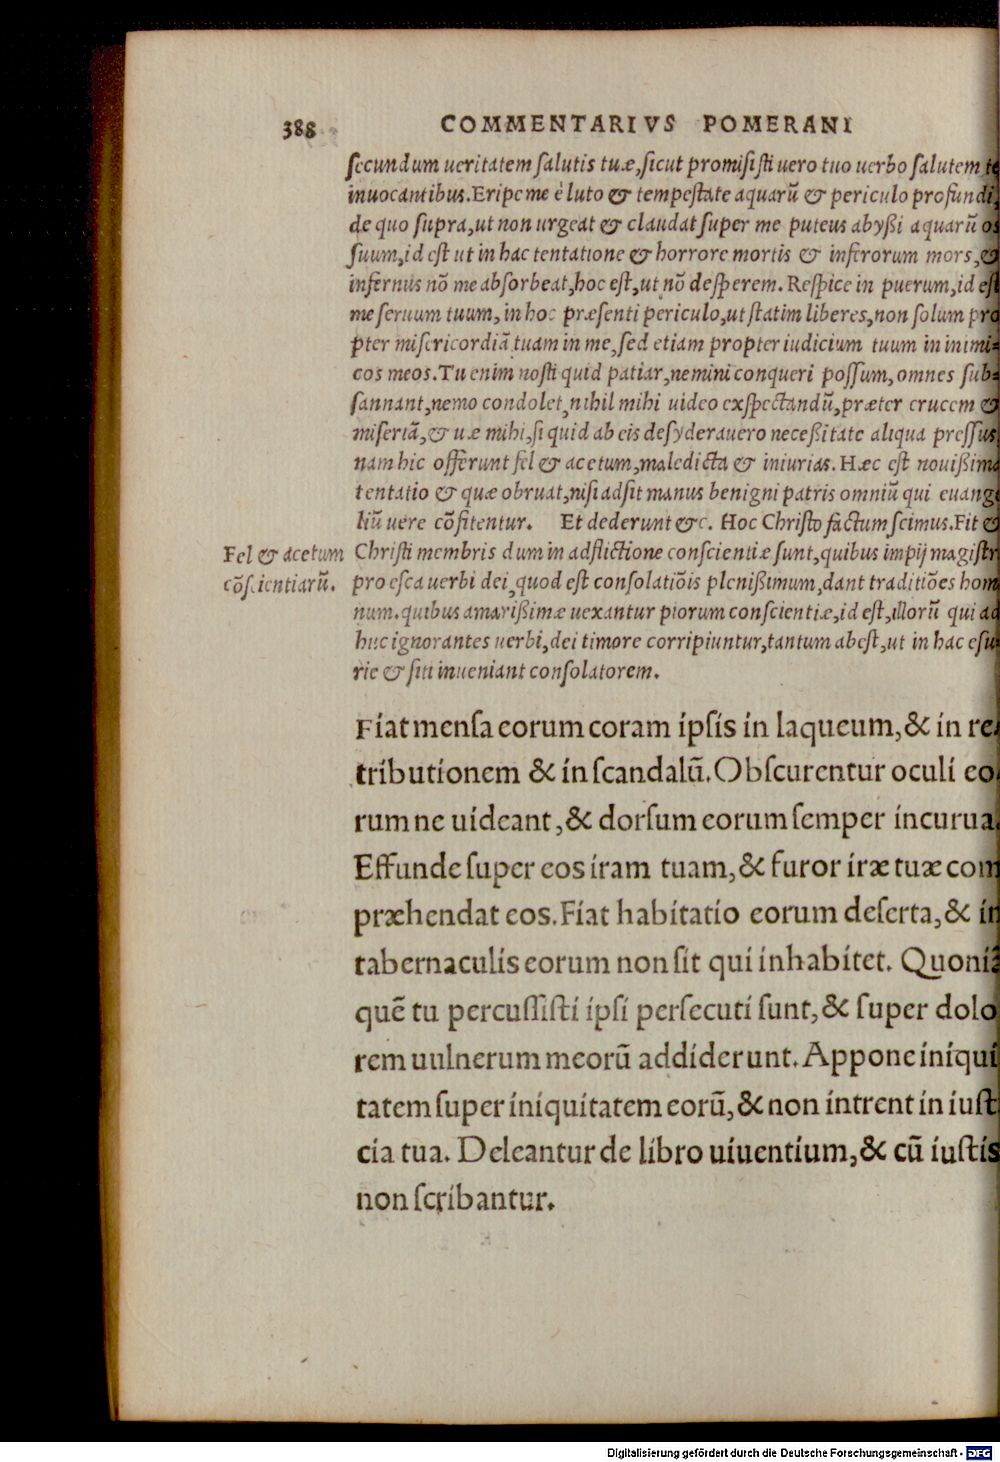 388 COMMENTARIVS POMERANI
secundum ueritatem salutis tuæ, sicut promisisti uero tuo uerbo salutem te
inuocantibus. Eripe me è luto & tempestate aquarũ & periculo profundi,
de quo supra, ut non urgeat & claudat super me puteus abyßi aquarũ os
suum, id est ut in hac tentatione & horrore mortis & inferorum mors, &
infernus nõ me absorbeat, hoc est, ut nõ desperem. Respice in puerum, id est
me seruum tuum, in hoc præsenti periculo, ut statim liberes, non solum pro
pter misericordiã tuam in me, sed etiam propter iudicium tuum in inimi=
cos meos. Tu enim nosti quid patiar, nemini conqueri possum, omnes sub=
sannant, nemo condolet, nihil mihi uideo exspectandũ, præter crucem &
miseriã, & uæ mihi, si quid ab eis desyderauero neceßitate aliqua pressus,
nam hic offerunt fel & acetum, maledicta & iniurias. Hæc est nouißima
tentatio & quæ obruat, nisi adsit manus benigni patris omniũ qui euange
liũ uere cõfitentur. Et dederunt &c. Hoc Christo factum scimus. Fit &
Fel & acetum
cõscientiarũ.
Christi membris dum in adflictione conscientiæ sunt, quibus impij magistri
pro esca uerbi dei, quod est consolatiõis plenißimum, dant traditiões homi
num. quibus amarißimæ uexantur piorum conscientiæ, id est, illorũ qui ad
huc ignorantes uerbi, dei timore corripiuntur, tantum abest, ut in hac esu
rie & siti inueniant consolatorem.
Fiat mensa eorum coram ipsis in laqueum, & in re
tributionem & in scandalũ. Obscurentur oculi eo
rum ne uideant, & dorsum eorum semper incurua.
Effunde super eos iram tuam, & furor iræ tuæ com
præhendat eos. Fiat habitatio eorum deserta, & in
tabernaculis eorum non sit qui inhabitet. Quoniã
quẽ tu percussisti ipsi persecuti sunt, & super dolo
rem uulnerum meorũ addiderunt. Appone iniqui
tatem super iniquitatem eorũ, & non intrent in iusti
cia tua. Deleantur de libro uiuentium, & cũ iustis
non scribantur.
Digitalisierung gefördert durch die Deutsche Forschungsgemeinschaft - DFG